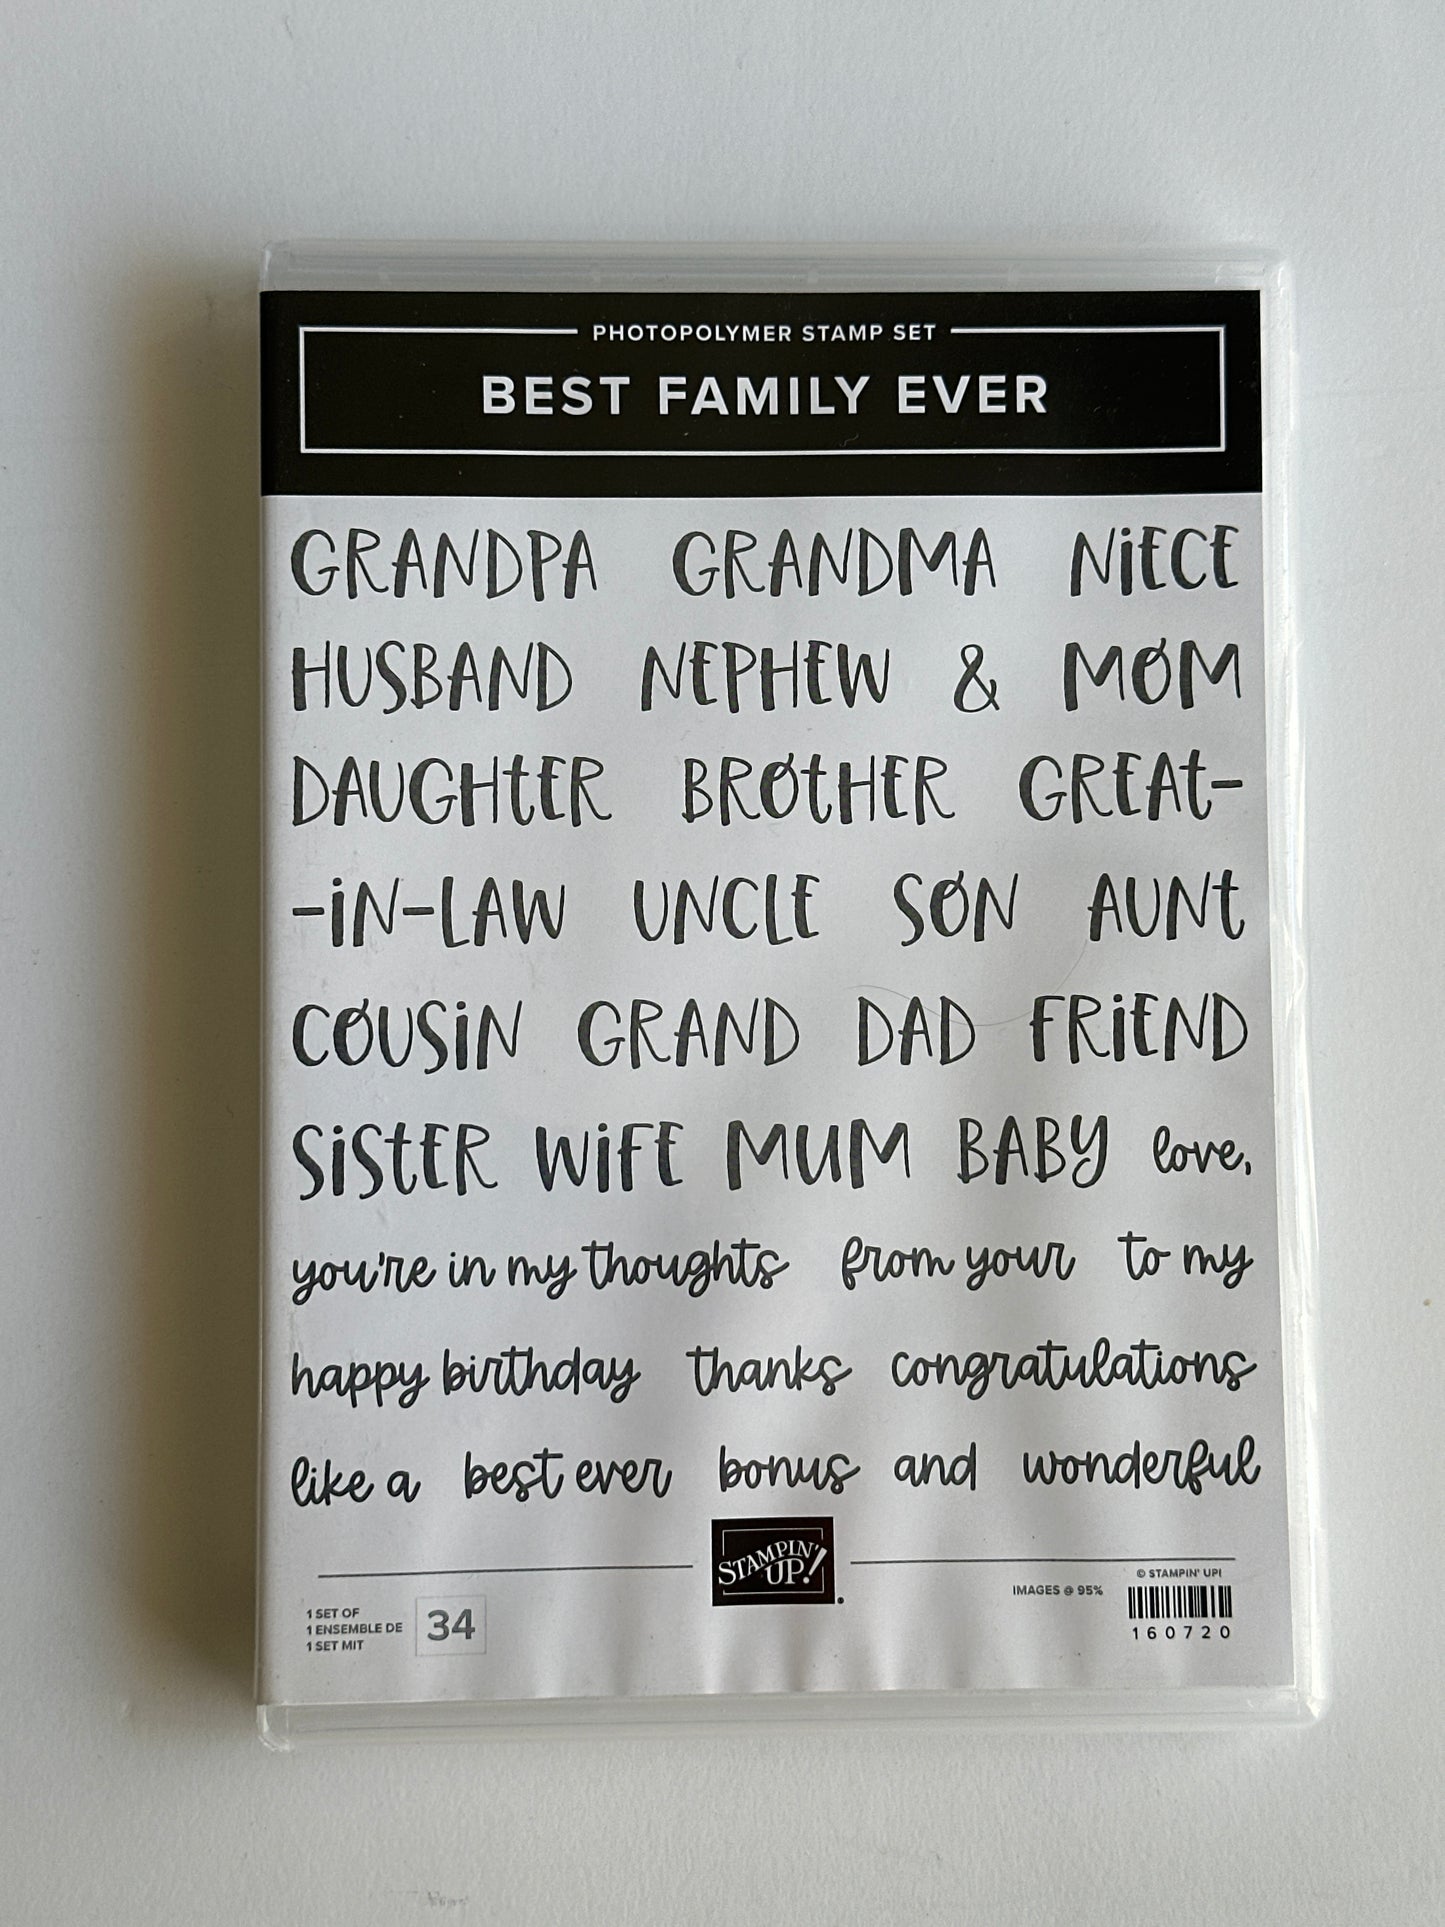 PHOTOPOLYMER STAMP SET
BEST FAMILY EVER
GRANDPA GRANDMA NiECE
HUSBAND NEPHEW & MOM
DAUGHtER BROtHER GREAt-
-iN-LAW UNCLE SON AUNt
COUSiN GRAND DAD FRiEND
SiStER WiFE MUM BABY love,
you're in my thoughts from your to my
happy birthday thanks congratulations
like a best ever bonus and wonderful
STAMPIN' UP!
© STAMPIN' UP!
IMAGES @ 95%
1 SET OF
1 ENSEMBLE DE 34
1 SET MIT
160720